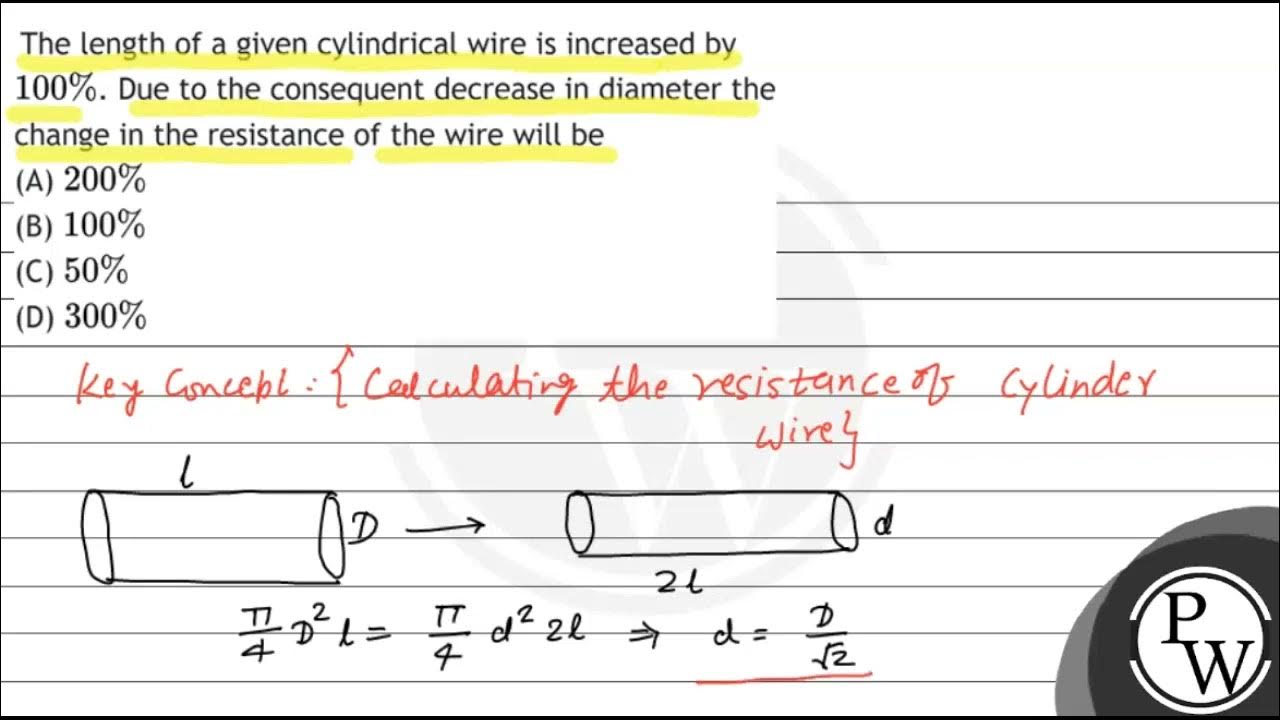 The length of a given cylindrical wire is increased by
100%. Due to the consequent decrease in diameter the
change in the resistance of the wire will be
(A) 200%
(B) 100%
(C) 50%
(D) 300%
Key Concept : { Calculating the resistance of Cylinder
wire}
l
D → d
2l
π/4 D² l = π/4 d² 2l ⇒ d = D/√2
PW